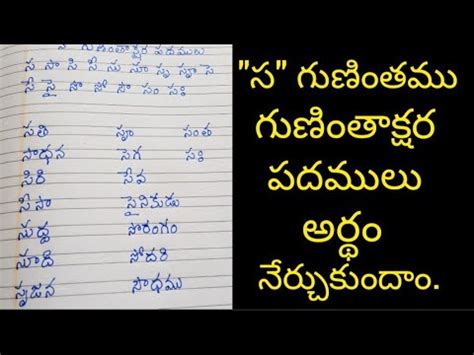 స గుణింతాక్షర పదములు
స సా సి సీ సు సూ సృ సౄ సె
సే సై సొ సో సౌ సం సః
సతి సౄ సంత
సాధన సెగ సః
సిరి సేవ
సీసా సైనికుడు
సుద్ద సొరంగం
సూది సోదరి
సృజన సౌధము
"స" గుణింతము
గుణింతాక్షర
పదములు
అర్థం
నేర్చుకుందాం.